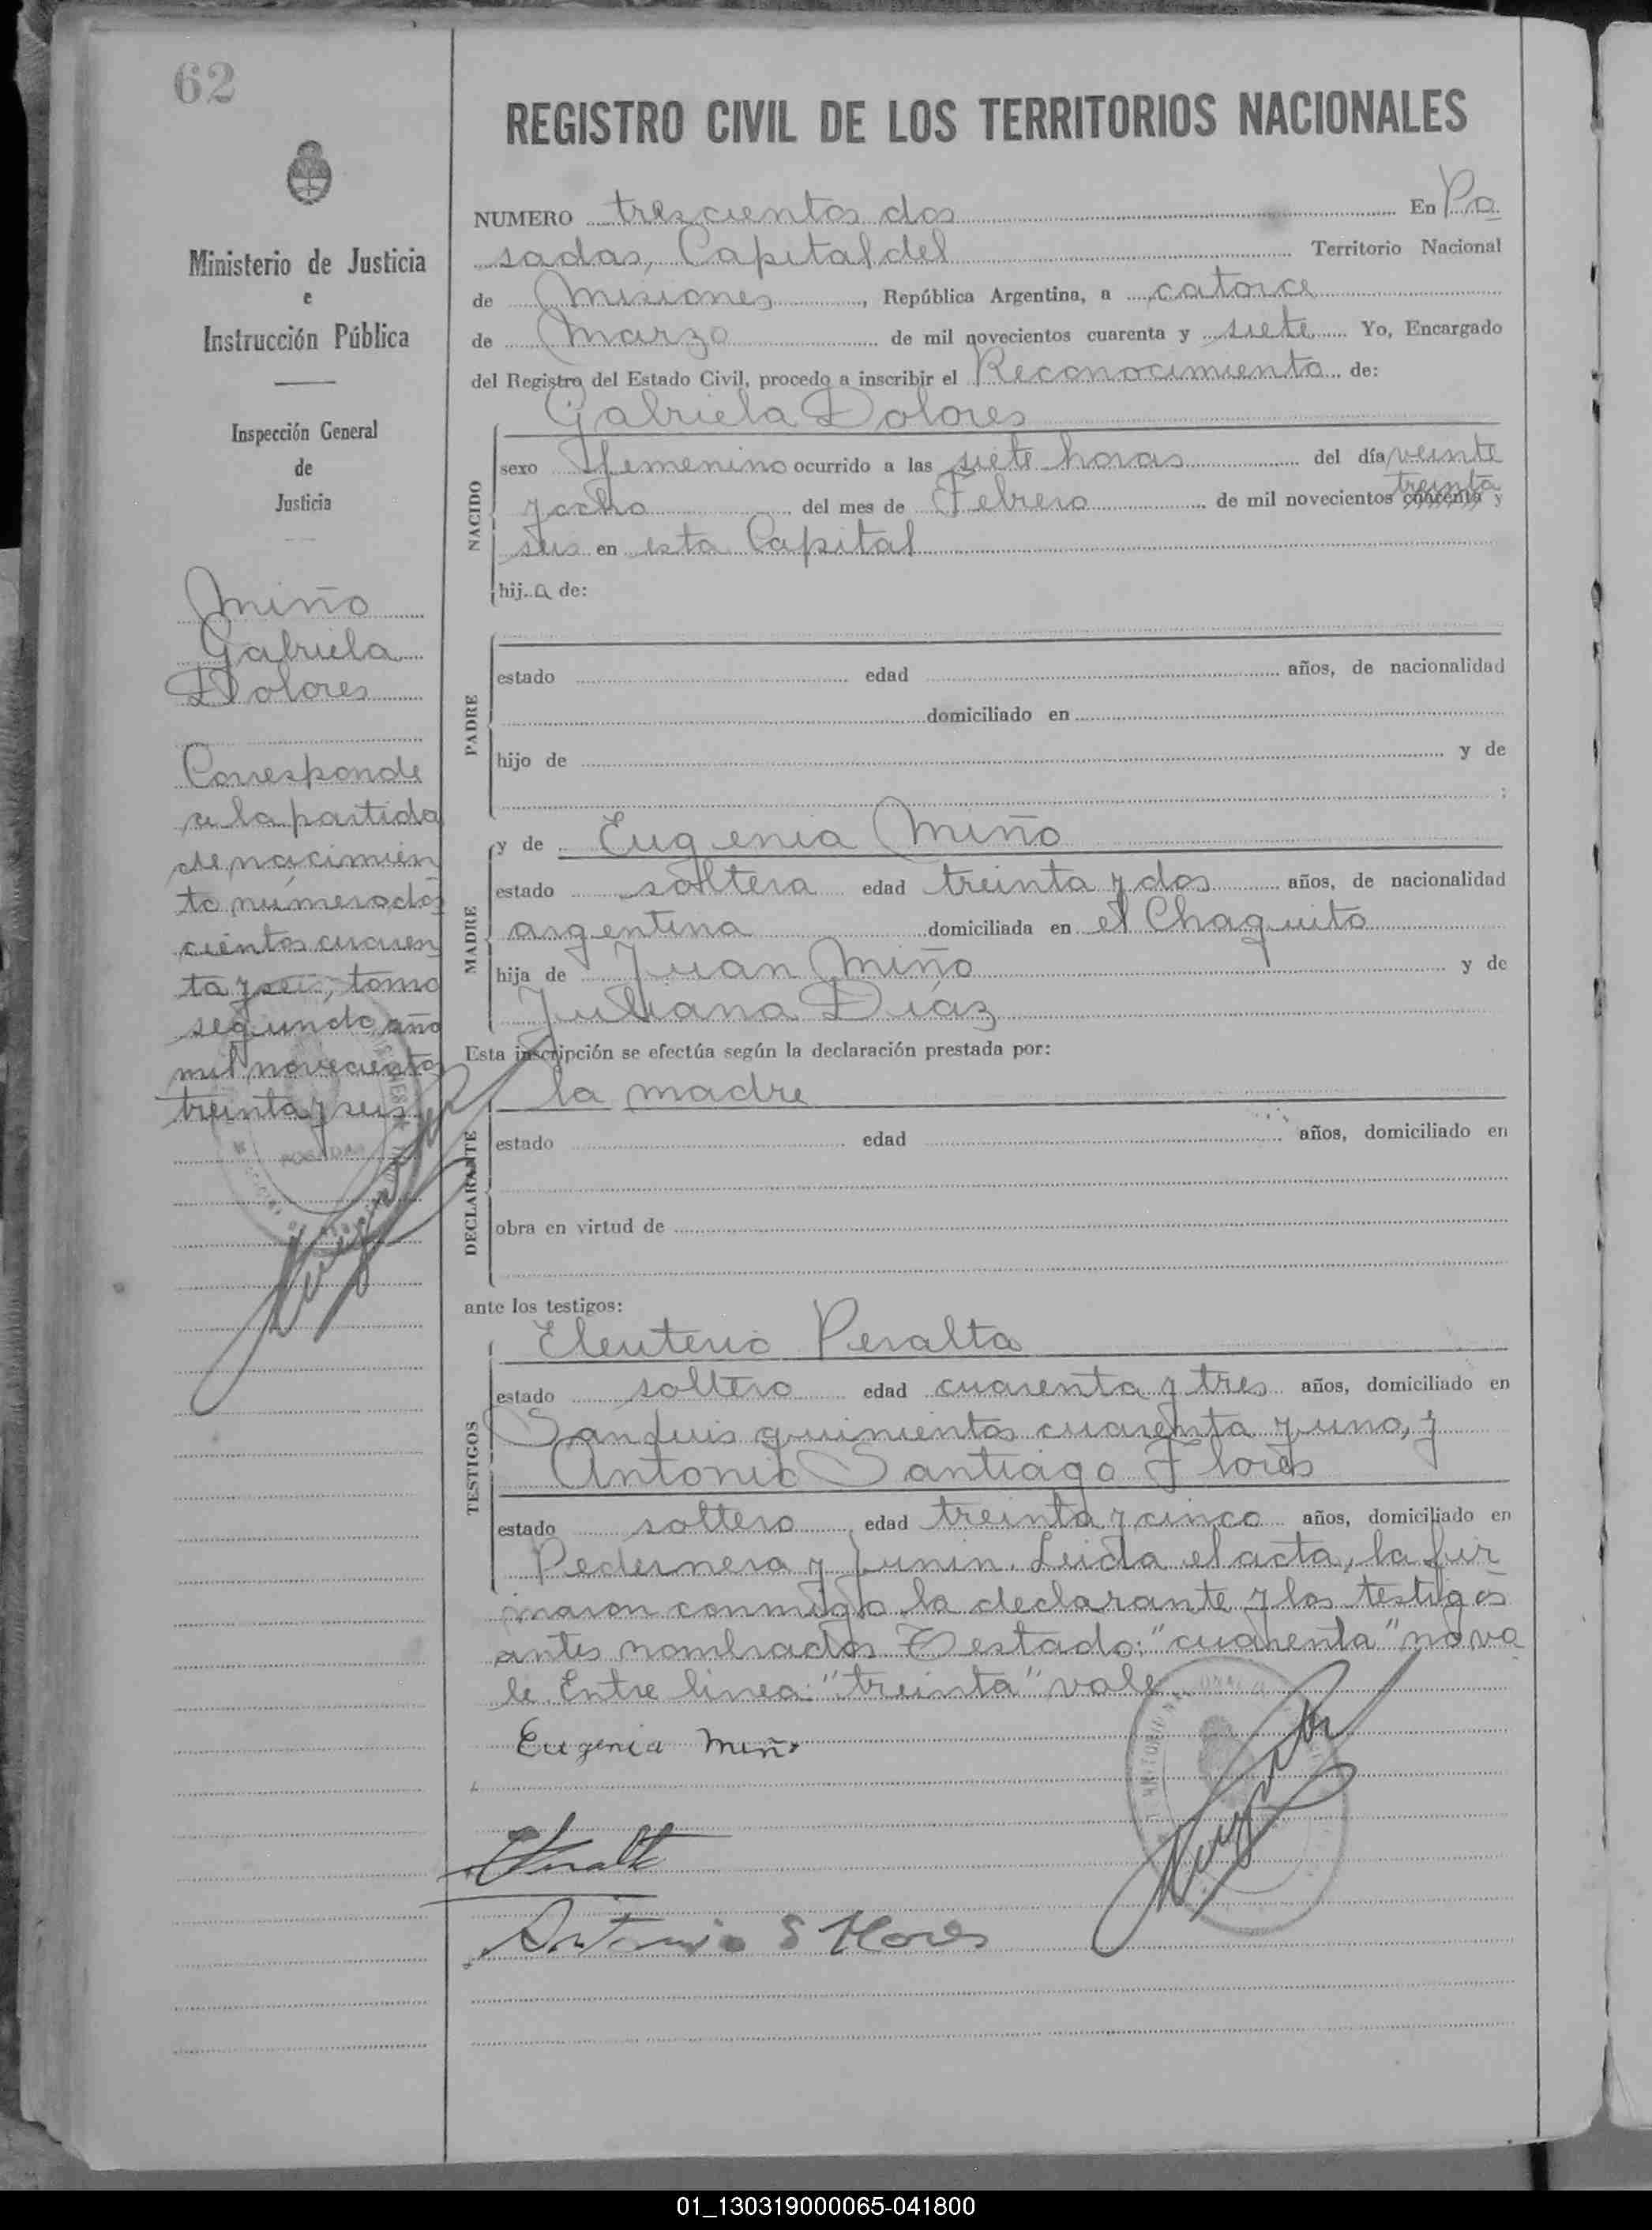 62
Ministerio de Justicia
e
Instrucción Pública
Inspección General
de
Justicia
Miño
Gabriela
Dolores
Corresponde
a la partida
de nacimien
to número dos
cientos cuaren
ta y seis, tomo
segundo, año
mil novecientos
treinta y seis
POSADAS
REGISTRO CIVIL DE LOS TERRITORIOS NACIONALES
NUMERO trescientos dos En Po
sadas, Capital del Territorio Nacional
de Misiones, República Argentina, a catorce
de Marzo de mil novecientos cuarenta y siete Yo, Encargado
del Registro del Estado Civil, procedo a inscribir el Reconocimiento de:
Gabriela Dolores
NACIDO
sexo femenino ocurrido a las siete horas del día veinte
treinta
y ocho del mes de Febrero de mil novecientos cuarenta y
seis en esta Capital
hija de:
PADRE
estado edad años, de nacionalidad
domiciliado en
hijo de y de
;
MADRE
y de Eugenia Miño
estado soltera edad treinta y dos años, de nacionalidad
argentina domiciliada en el Chaquito
hija de Juan Miño y de
Juliana Díaz
Esta inscripción se efectúa según la declaración prestada por:
DECLARANTE
la madre
estado edad años, domiciliado en
obra en virtud de
ante los testigos:
TESTIGOS
Eleuterio Peralta
estado soltero edad cuarenta y tres años, domiciliado en
San Luis quinientos cuarenta y uno, y
Antonio Santiago Flores
estado soltero edad treinta y cinco años, domiciliado en
Pedernera y Junin. Leida el acta, la fir
maron conmigo la declarante y los testigos
antes nombrados Testado: "cuarenta" no va
le. Entre linea: "treinta" vale
Eugenia Miño
Antonio S Flores
01_130319000065-041800